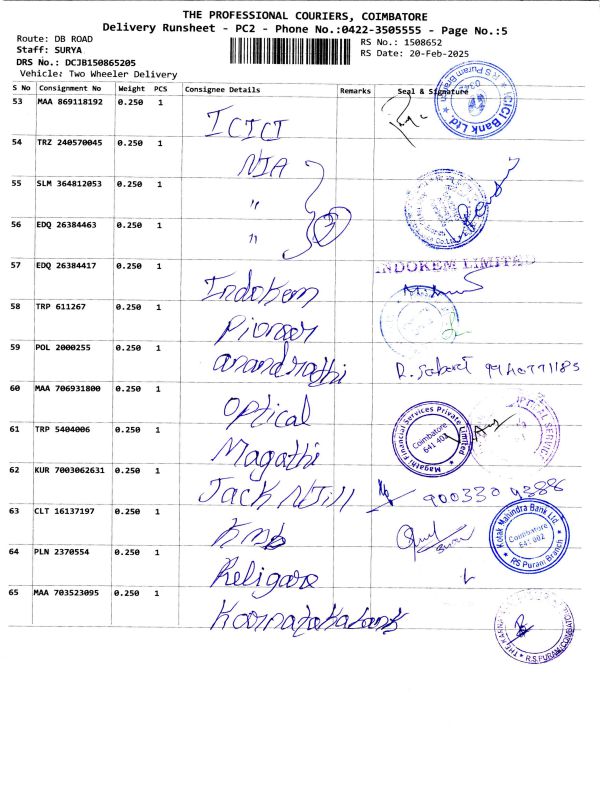 THE PROFESSIONAL COURIERS, COIMBATORE
Delivery Runsheet - PC2 - Phone No.:0422-3505555 - Page No.:5
Route: DB ROAD
Staff: SURYA
DRS No.: DCJB150865205
Vehicle: Two Wheeler Delivery
RS No.: 1508652
RS Date: 20-Feb-2025
S No Consignment No Weight PCS Consignee Details Remarks Seal & Signature
53 MAA 869118192 0.250 1 ICICI
ICICI Bank Ltd. * R S Puram Branch
54 TRZ 240570045 0.250 1 NIA
55 SLM 364812053 0.250 1 "
56 EDQ 26384463 0.250 1 "
57 EDQ 26384417 0.250 1 Indokem
INDOKEM LIMITED
58 TRP 611267 0.250 1 Pioneer
59 POL 2000255 0.250 1 anandrathi
60 MAA 706931800 0.250 1 Optical
61 TRP 5404006 0.250 1 Magathi
Magathi Financial Services Private Limited
Coimbatore
641 402
62 KUR 7003062631 0.250 1 Jack N Jill
63 CLT 16137197 0.250 1 Kmb
Kotak Mahindra Bank Ltd
Coimbatore
641 002
* RS Puram Branch *
64 PLN 2370554 0.250 1 Religare
65 MAA 703523095 0.250 1 Karnatakabank
* R.S.PURAM,COIMBATORE